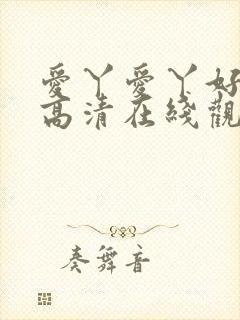 愛丫愛丫好
高清在綫觀
奏舞音